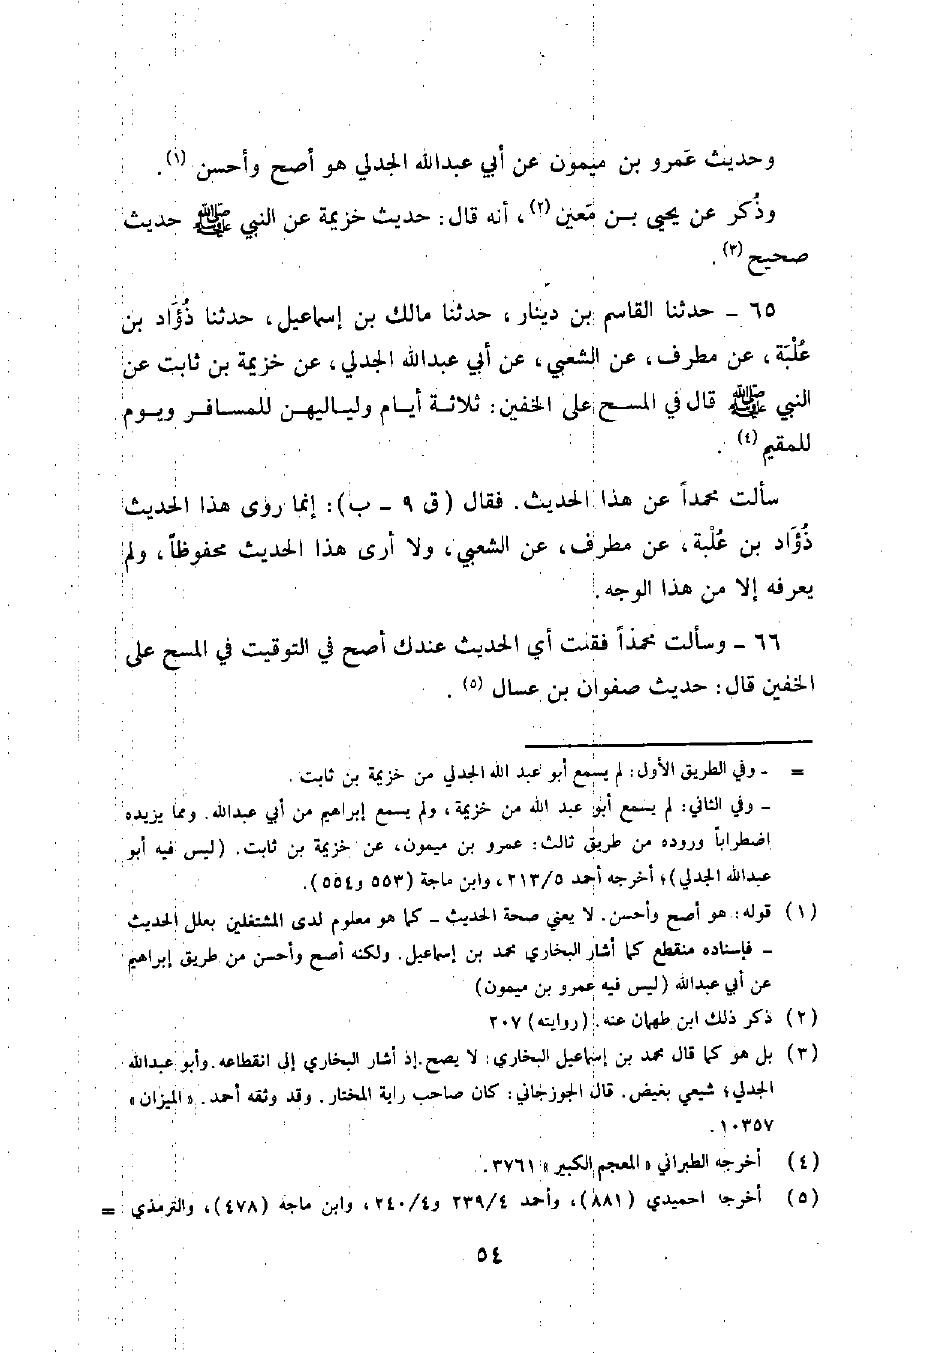 وحديث عَمرو بن ميمون عن أبي عبدالله الجدلي هو أصح وأحسن (١).
وذُكر عن يحيى بـن مَعين (٢)، أنه قال: حديث خزيمة عن النبي ﷺ حديث
صحيح (٣).
٦٥ ـ حدثنا القاسم بن دينار، حدثنا مالك بن إسماعيل، حدثنا ذُؤَاد بن
عُلْبَة، عن مطرف، عن الشعبي، عن أبي عبدالله الجدلي، عن خزيمة بن ثابت عن
النبي ﷺ قال في المسح على الخفين: ثلاثـة أيـام ولياليهـن للمسافـر ويـوم
للمقيم (٤).
سألت محمداً عن هذا الحديث. فقال (ق ٩ ـ ب): إنما روى هذا الحديث
ذُؤَاد بن عُلْبة، عن مطرف، عن الشعبي، ولا أرى هذا الحديث محفوظاً، ولم
يعرفه إلا من هذا الوجه.
٦٦ ـ وسألت محمداً فقلت أي الحديث عندك أصح في التوقيت في المسح على
الخفين قال: حديث صفوان بن عسال (٥).
= ـ وفي الطريق الأول: لم يسمع أبو عبد الله الجدلي من خزيمة بن ثابت.
ـ وفي الثاني: لم يسمع أبو عبد الله من خزيمة، ولم يسمع إبراهيم من أبي عبدالله. ومما يزيده
اضطراباً وروده من طريق ثالث: عمرو بن ميمون، عن خزيمة بن ثابت. (ليس فيه أبو
عبدالله الجدلي)؛ أخرجه أحمد ٢١٣/٥، وابن ماجة (٥٥٣ و٥٥٤).
(١) قوله: هو أصح وأحسن. لا يعني صحة الحديث ـ كما هو معلوم لدى المشتغلين بعلل الحديث
ـ فإسناده منقطع كما أشار البخاري محمد بن إسماعيل. ولكنه أصح وأحسن من طريق إبراهيم
عن أبي عبدالله (ليس فيه عمرو بن ميمون)
(٢) ذكر ذلك ابن طهمان عنه. (روايته) ٢٠٧
(٣) بل هو كما قال محمد بن إسماعيل البخاري: لا يصح. إذ أشار البخاري إلى انقطاعه. وأبو عبدالله
الجدلي؛ شيعي بغيض. قال الجوزجاني: كان صاحب راية المختار. وقد وثقه أحمد. «الميزان»
١٠٣٥٧.
(٤) أخرجه الطبراني «المعجم الكبير» ٣٧٦١.
(٥) أخرجا احميدي (٨٨١)، وأحمد ٢٣٩/٤ و٢٤٠/٤، وابن ماجه (٤٧٨)، والترمذي =
٥٤